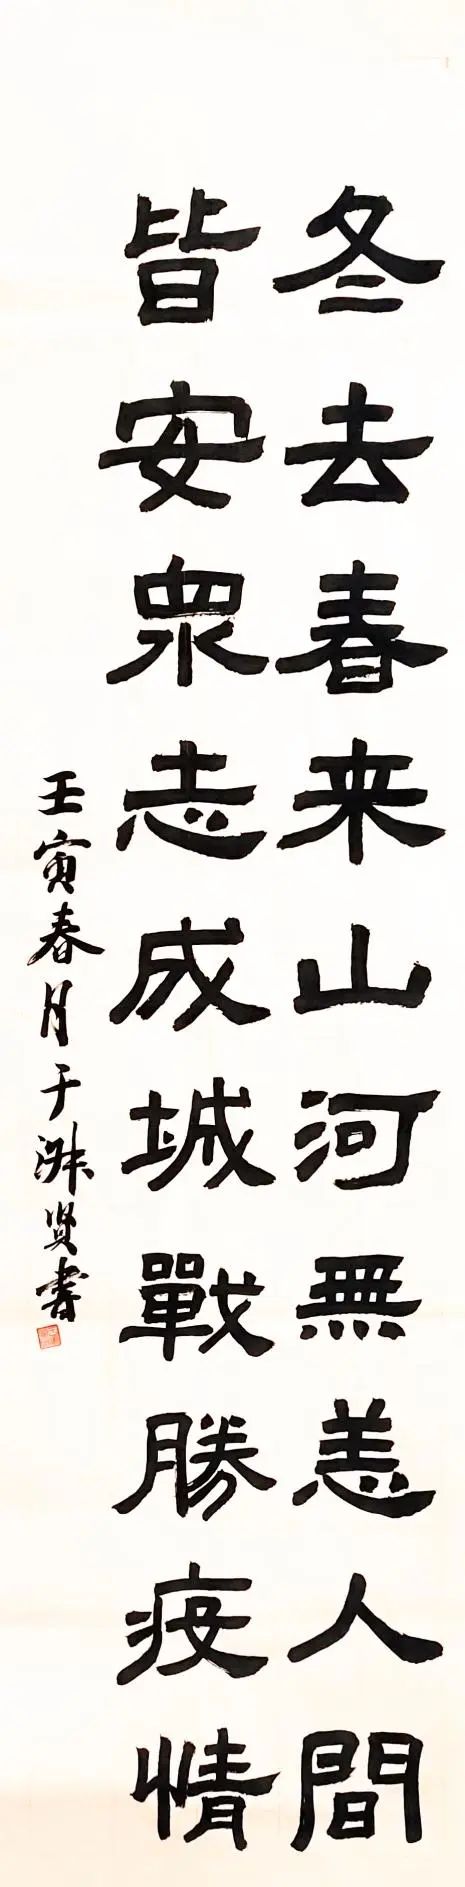 冬去春来山河無恙人間
皆安衆志成城戰勝疫情
壬寅春月于淑贤書